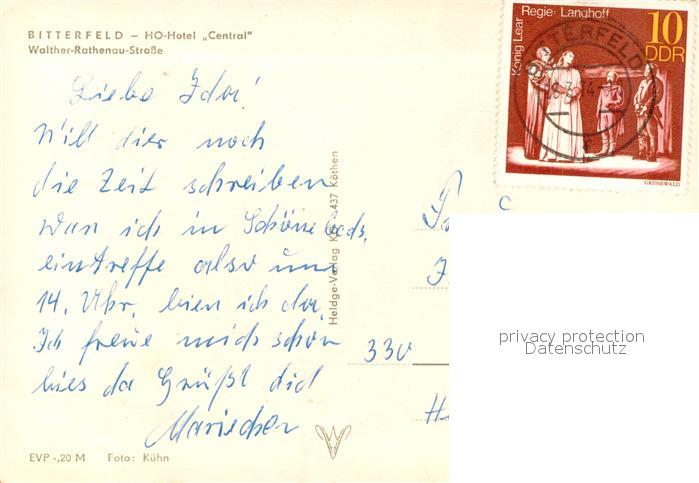 BITTERFELD – HO-Hotel „Central"
Walther-Rathenau-Straße
Liebe Ida!
Will dier noch
die Zeit schreiben
Wan ich in Schönebeck,
eintreffe also um
14. Uhr, bien ich da,
Ich freue mich schon
bies da Grüßt dich
Mariechen
EVP -,20 M Foto: Kühn
Heldge-Verlag KG 437 Köthen
König Lear Regie: Langhoff
10
DDR
GRÜNEWALD
BITTERFELD
330
privacy protection
Datenschutz